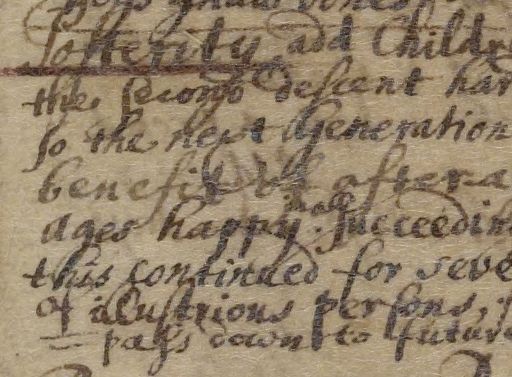 Posterity and Childre
the second descent har
so the next Generation
benefit of after a
ages happy. make succeedin
this continued for seve
of ilustrious persons,
pass down to future